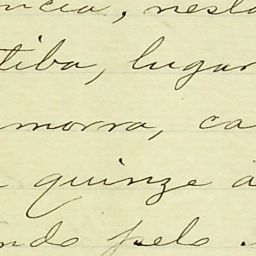 ncia, nesta
tiba, lugar
morro, ca
quinze a
ndo pelo